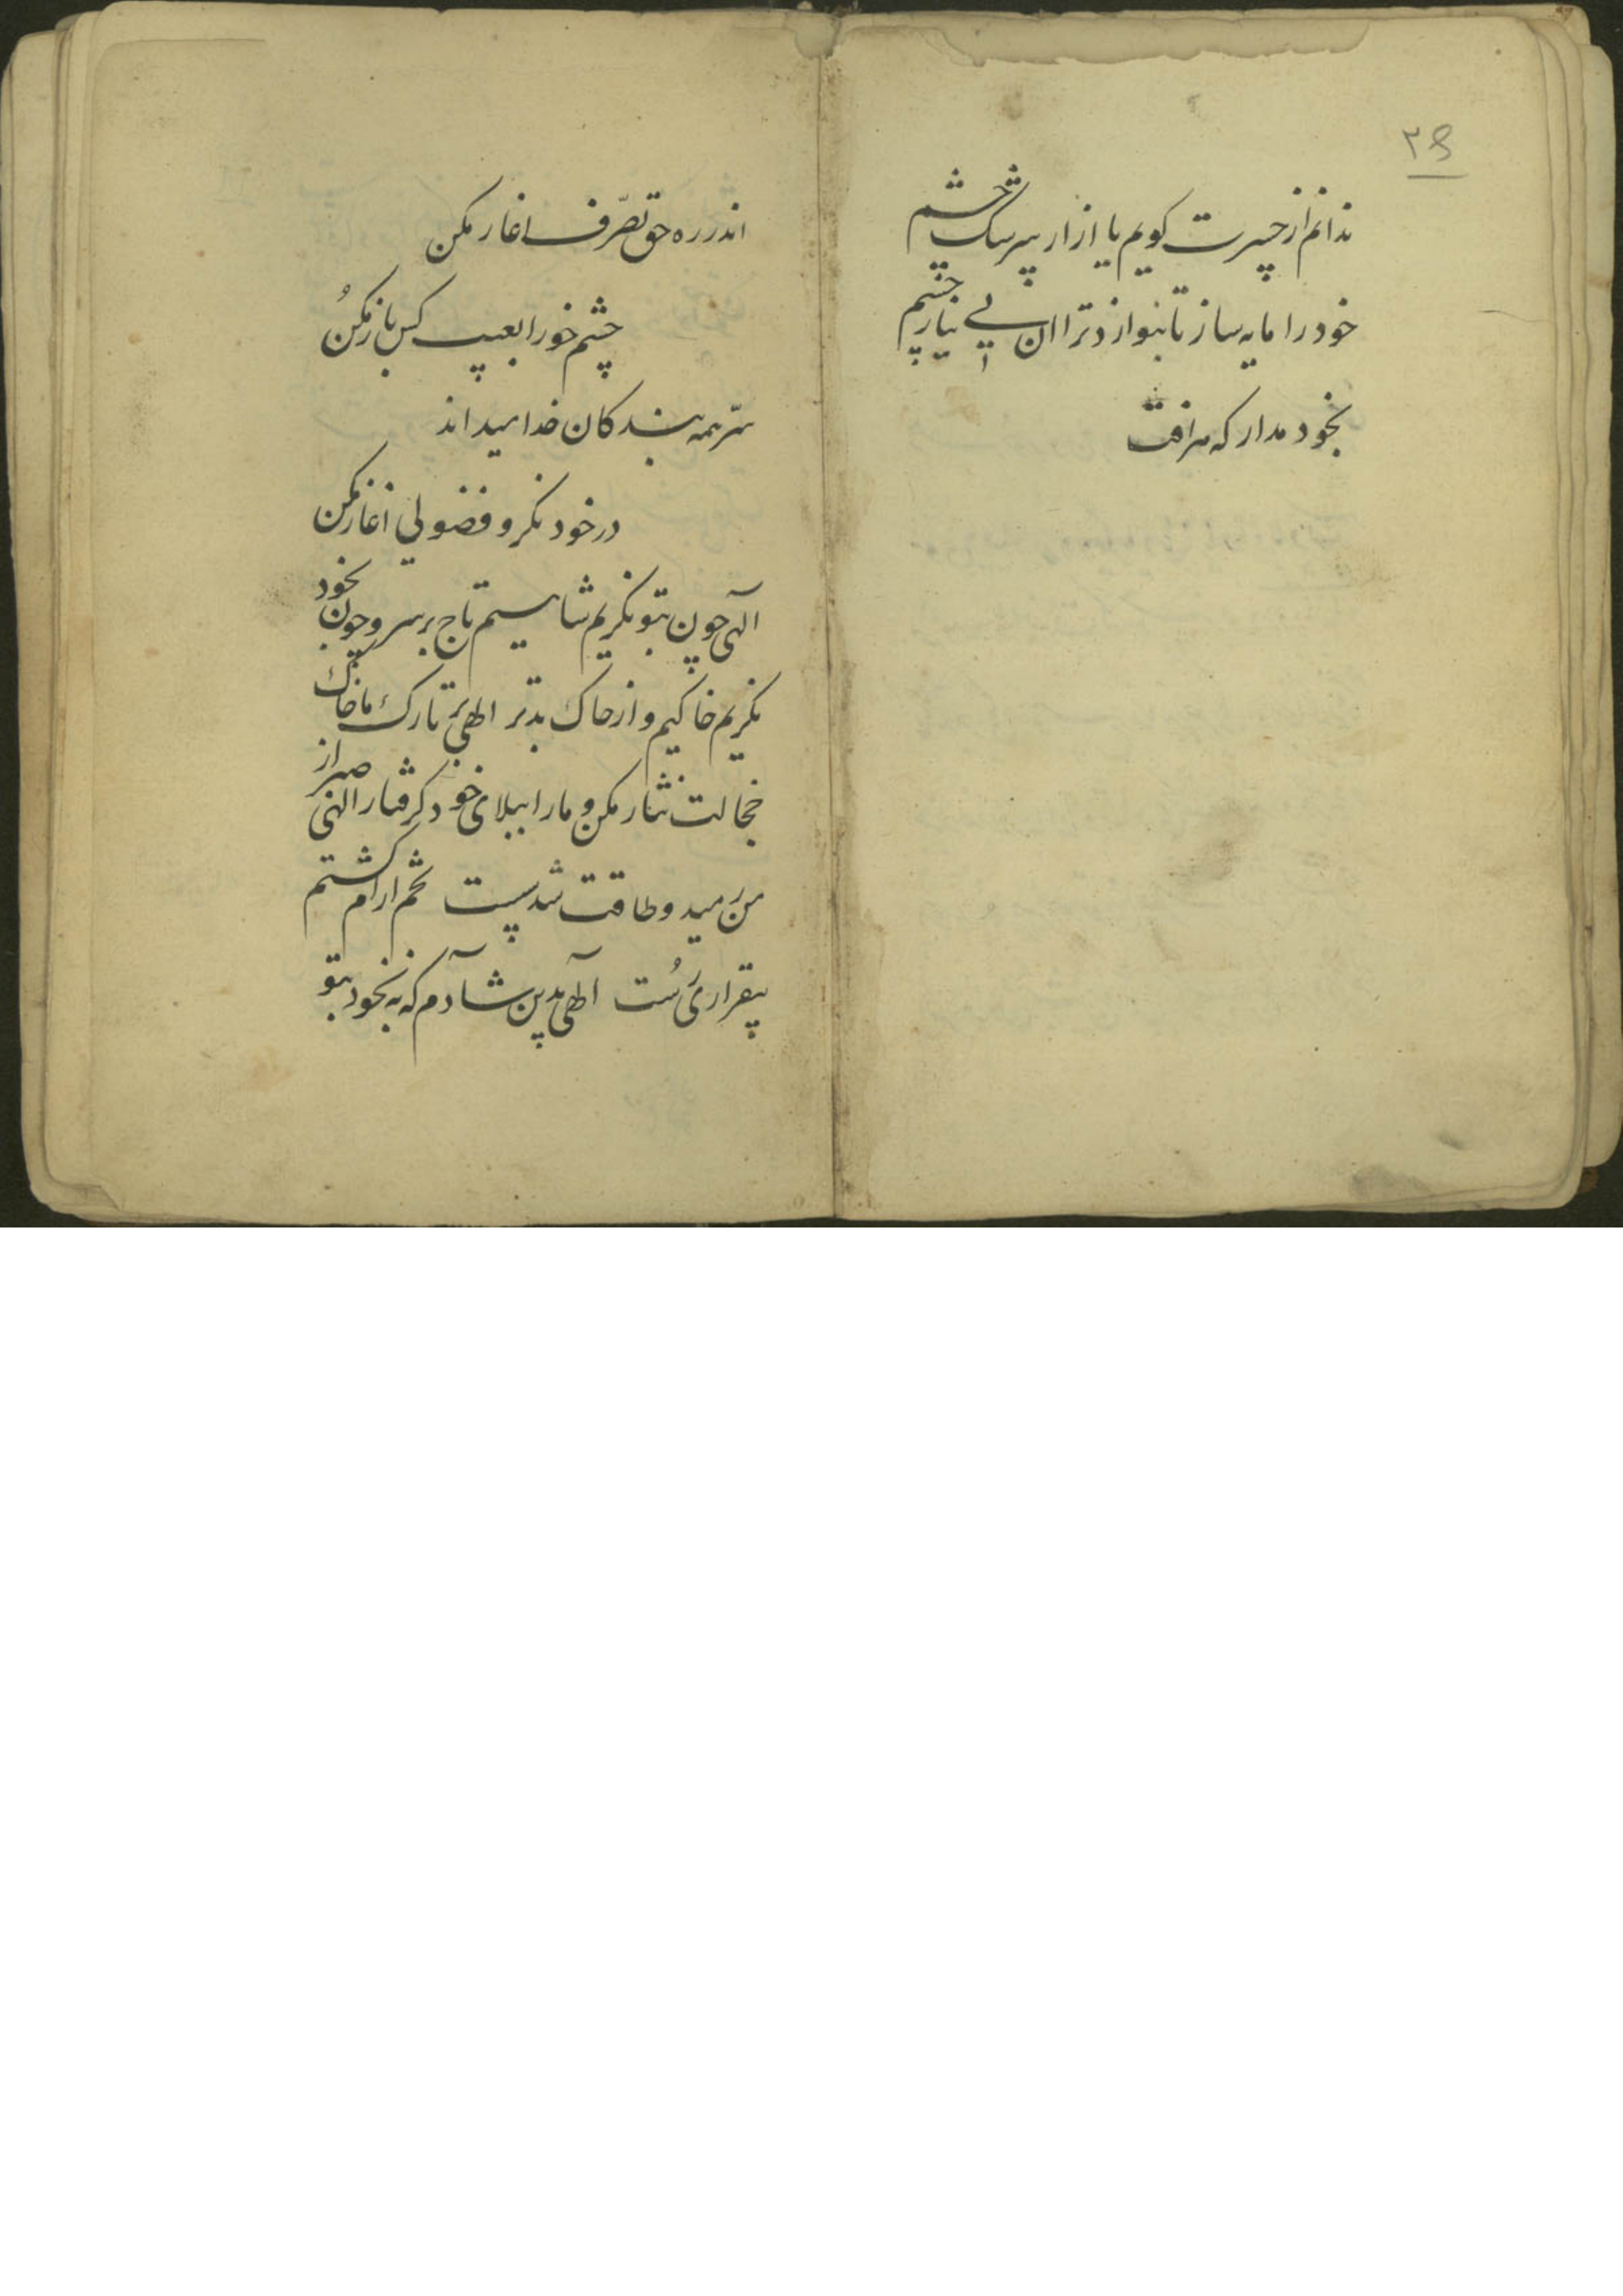 ۳۹
ندانم از حسرت کویم یا از ار سرشک چشم
خود را مایه ساز تا بنوازد ترا ان بی نیاز چشم
بخود مدار که مرافت
اندر ره حق تصرّف اغاز مکن
چشم خورا بعیب کس باز مکن
سرّ همه بندکان خدا میداند
در خود نکر و فضولی اغاز مکن
الهی چون بتو نکریم شاهیم تاج بر سر و چون بخود
نکریم خاکیم و از خاک بدتر الهی بر تارک ما خاک
خجالت نثار مکن و مارا ببلای خود کرفتار الهی صبر از
من رمید و طاقت شد سست تخم ارام کشتم
بیقراری رُست الهی بدین شادم که نه بخود بتو